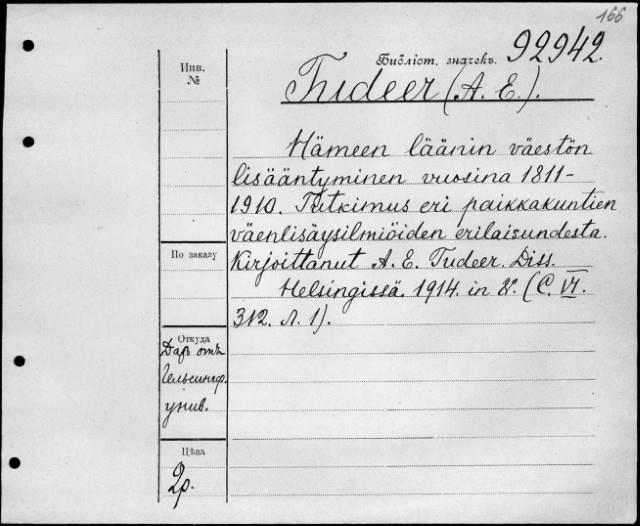 166
Библіот. значекъ. 92942.
Инв.
№
Tudeer (A. E.).
Hämeen läänin väestön
lisääntyminen vuosina 1811-
1910. Tutkimus eri paikkakuntien
väenlisäysilmiöiden erilaisundesta.
Kirjoittanut A. E. Tudeer. Diss.
Helsingissä. 1914. in 8°. (C. VI.
312. л. 1).
По заказу
Откуда
Даръ отъ
Гельсингф.
унив.
Цѣна
2р.